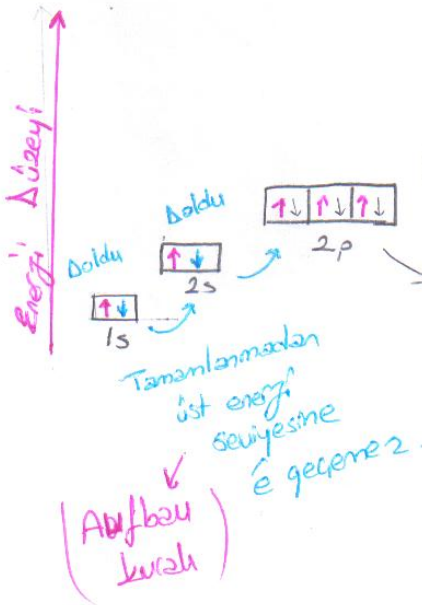 Enerji Düzeyi
Doldu
1s
Doldu
2s
2p
Tamamlanmadan
üst enerji
seviyesine
é geçemez.
(Aufbau
kuralı)